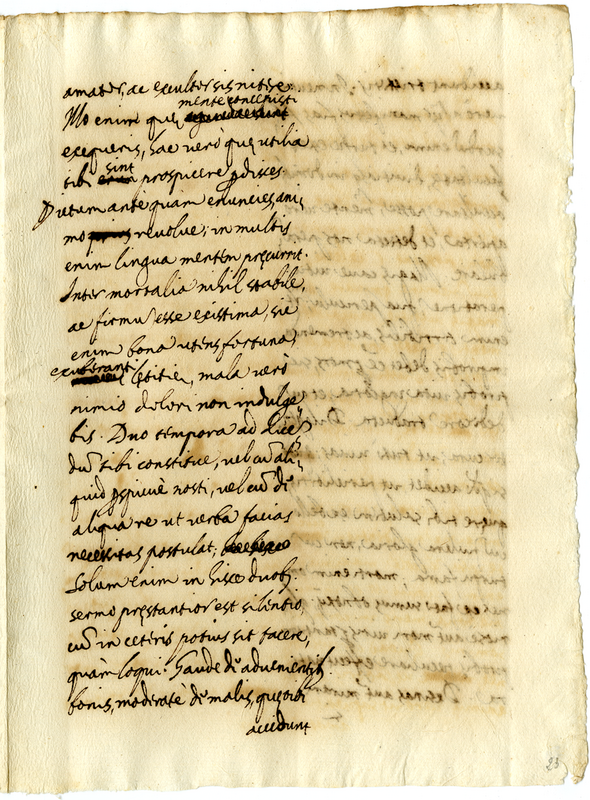 amator, ac excultor sis nitere.
mente concepisti
Illo enim quę
exequeris, hac verò quę utilia
sint
tibi prospicere pdisces.
Dictum antequam enuncies ani,
mo revolve; in multis
enim lingua mentem pręcurrit.
Inter mortalia nihil stabile,
ac firmũ esse existima, sic
enim bona utens fortuna,
exuberanti
lętitię, mala verò
nimio dolori non indulge
bis. Duo tempora ad dicẽ
dũ tibi constitue, vel cũ ali,
quid pspicuè nosti, vel cũ dè
aliqua re ut verba facias
necessitas postulat;
Solum enim in hisce duobꝰ
sermo pręstantior est silentio,
cũ in cęteris potius sit tacere,
quàm loqui. Gaude dè advenientibꝰ
bonis, moderatè dè malis, quę tibi
accidunt
23